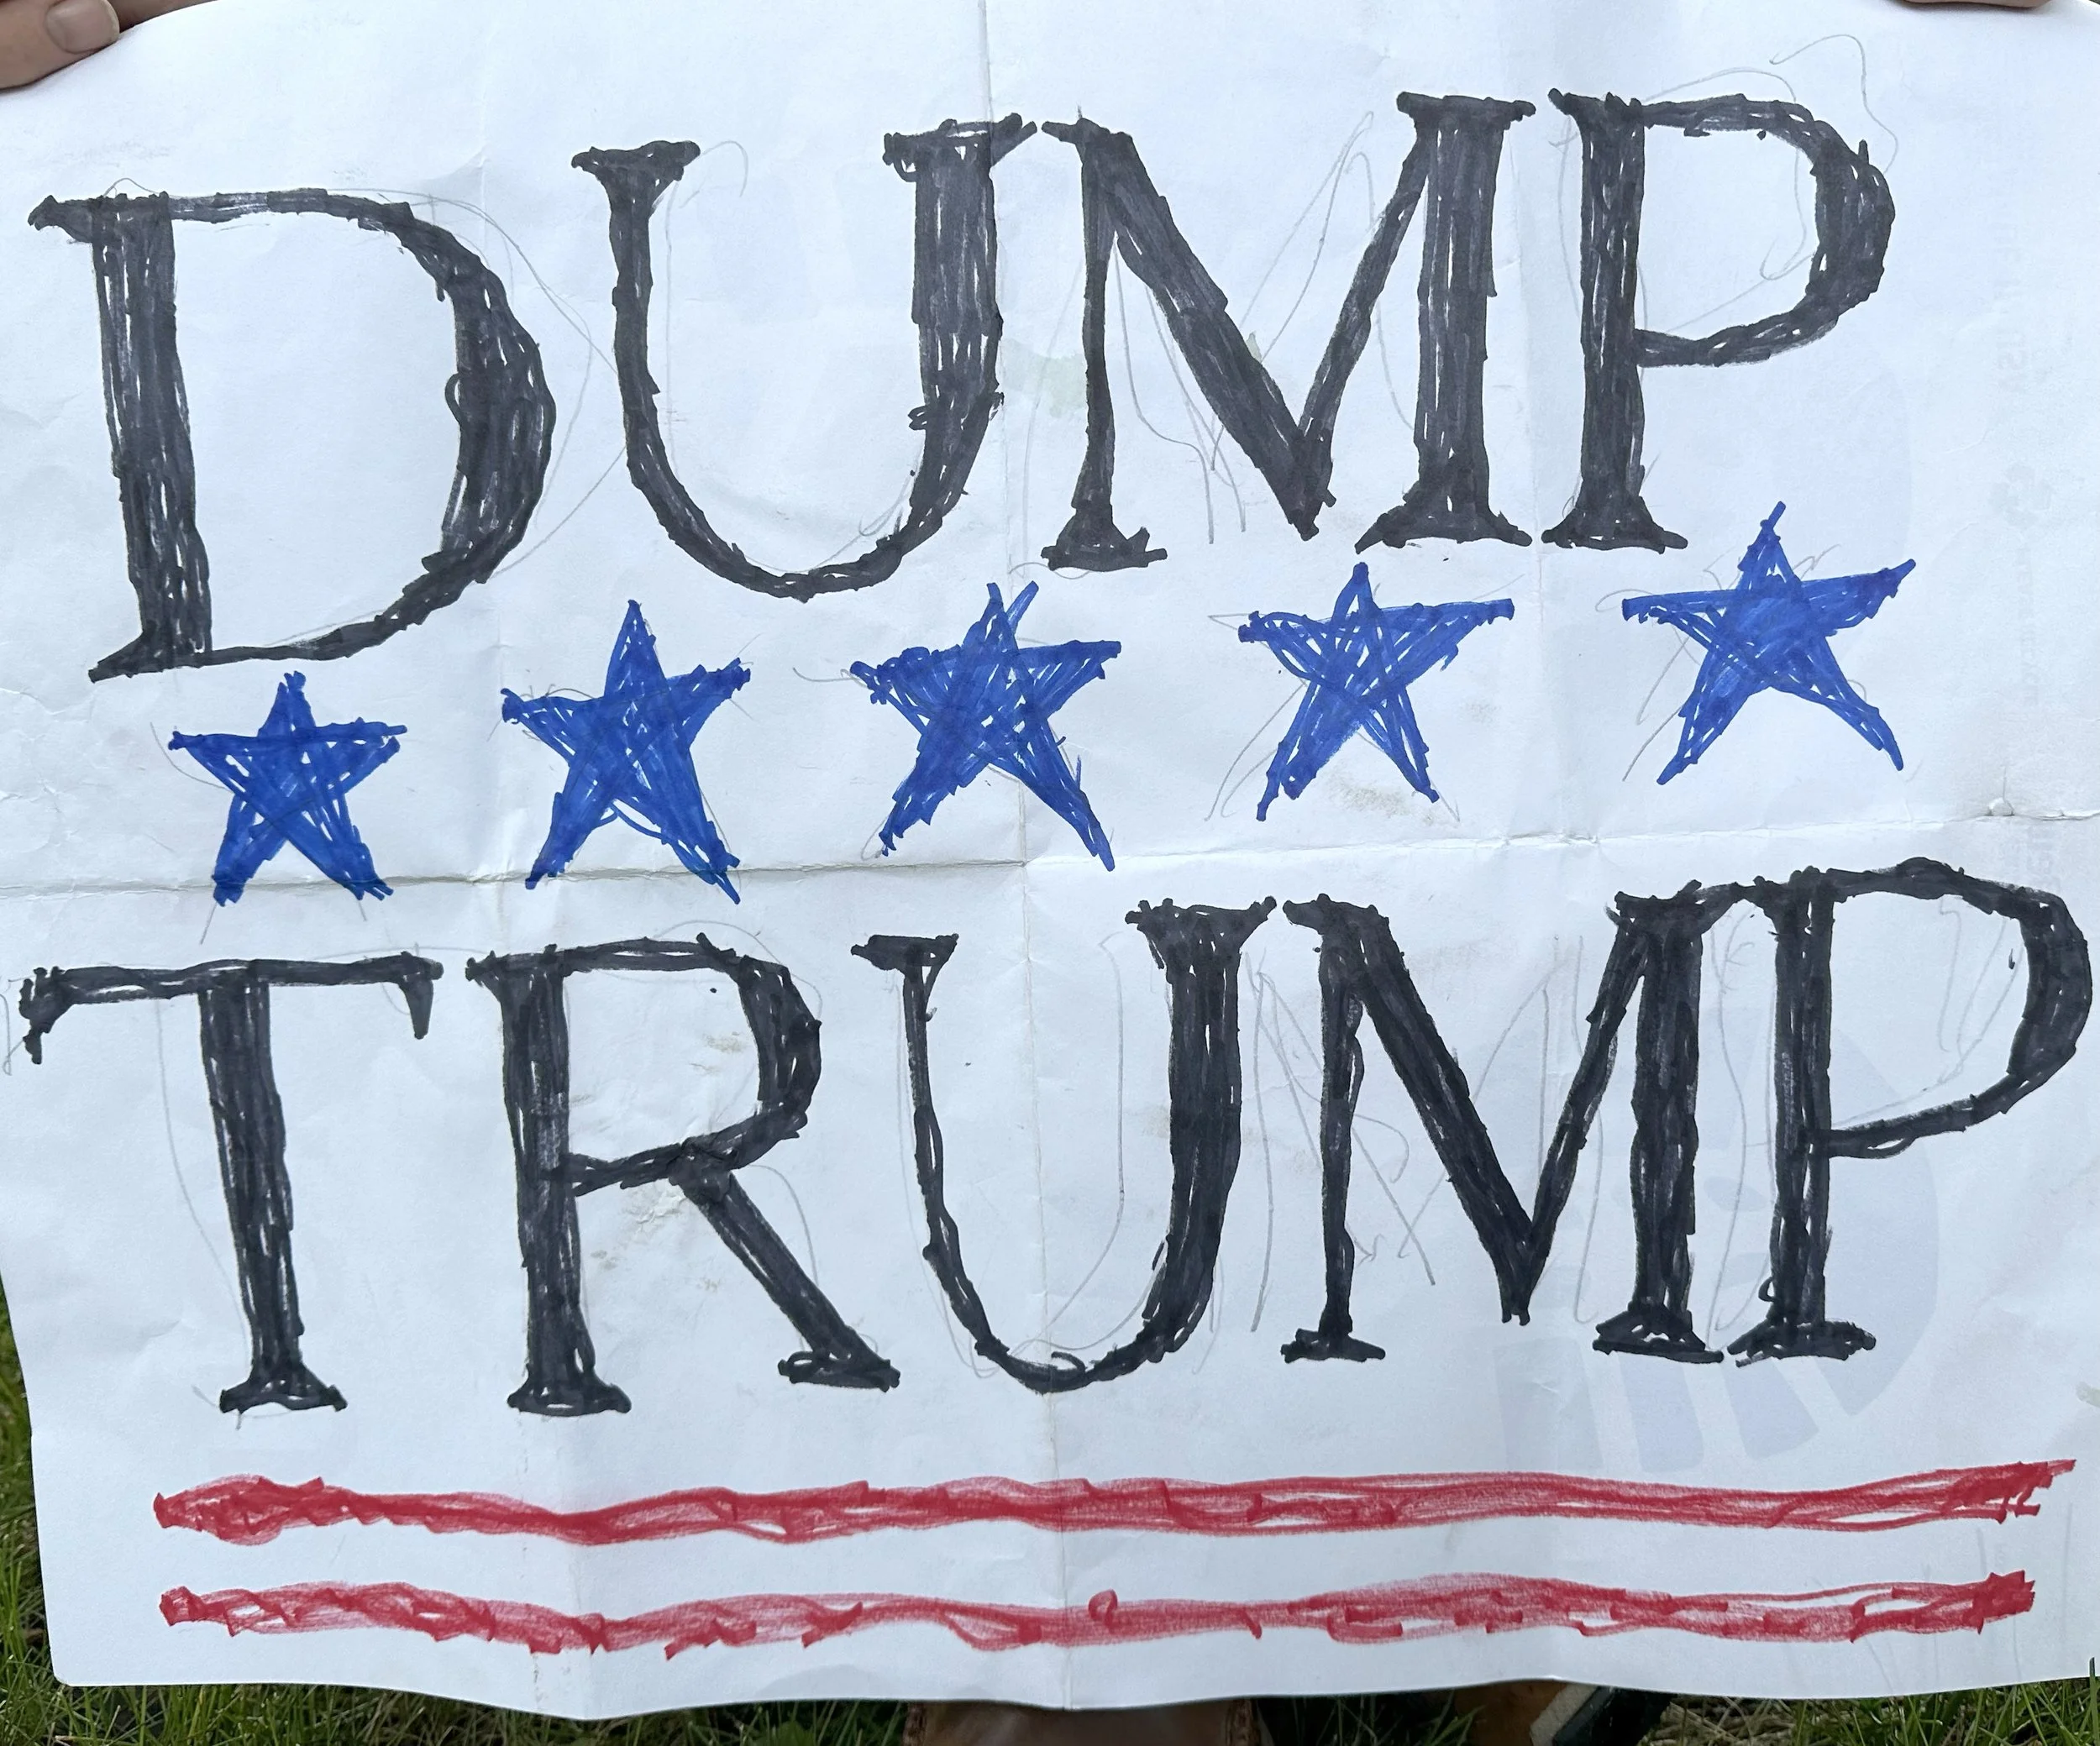 DUMP
TRUMP